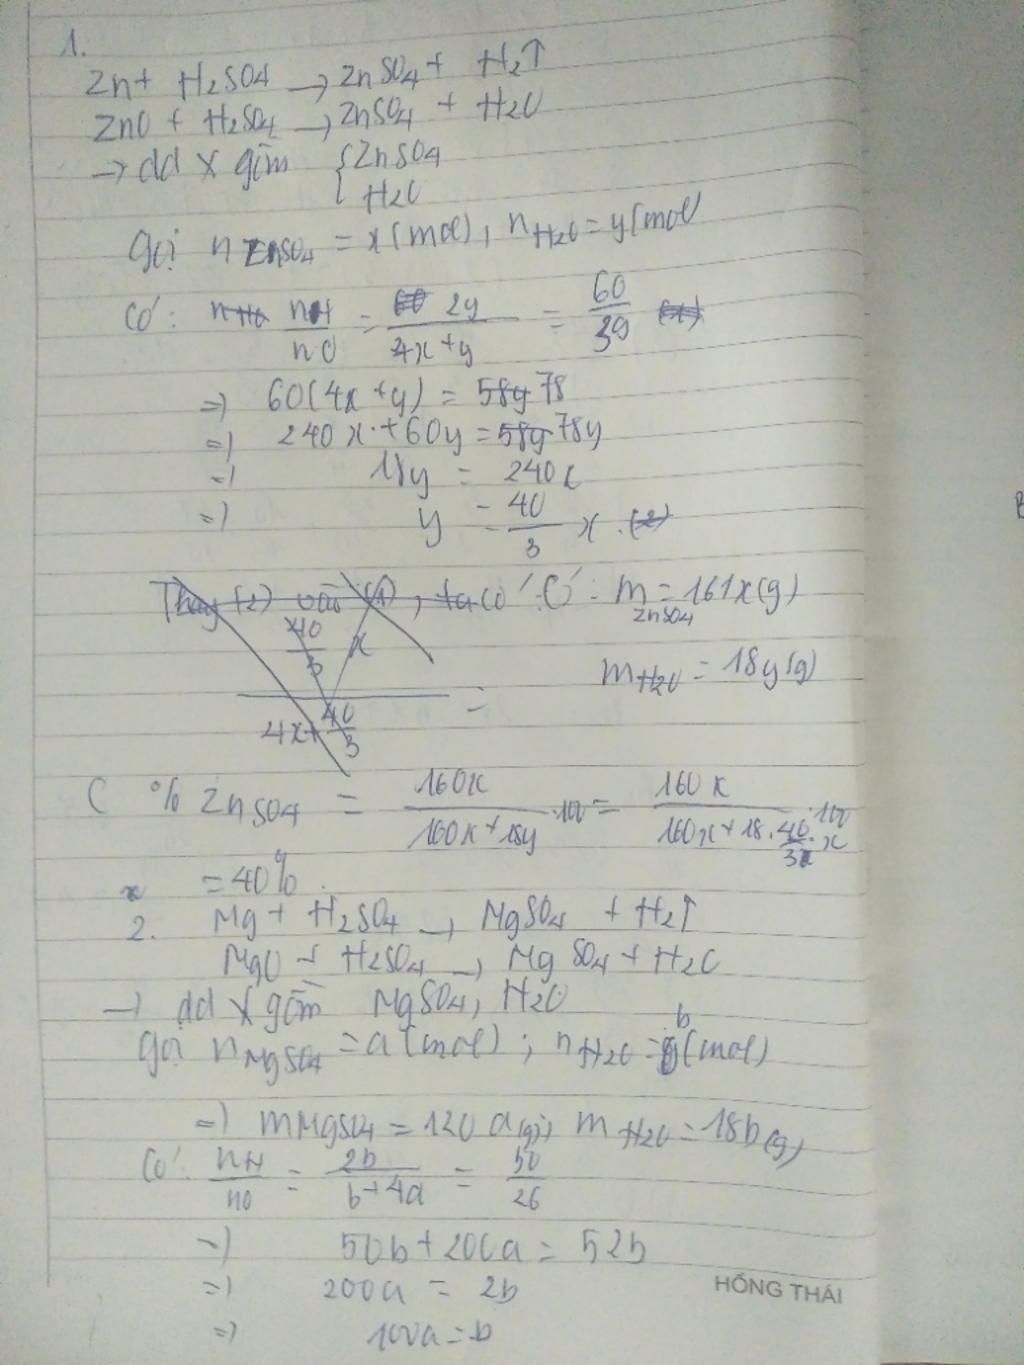 1.
Zn + H2SO4 → ZnSO4 + H2↑
ZnO + H2SO4 → ZnSO4 + H2O
→ dd X gồm { ZnSO4
H2O
Gọi nZnSO4 = x(mol), nH2O = y(mol
Có: nH/nO = 2y/(4x+y) = 60/39
=> 60(4x+y) = 78
=> 240x + 60y = 78y
=> 18y = 240x
=> y = 40/3 x
Thay (2) vào (1), ta có: Có: mZnSO4 = 161x(g)
40/3 x
mH2O = 18y(g)
4x+40/3 =
C% ZnSO4 = 160x/(160x+18y) .100 = 160x/(160x+18.40/3.x) .100
= 40%.
2. Mg + H2SO4 → MgSO4 + H2↑
MgO + H2SO4 → MgSO4 + H2O
→ dd X gồm MgSO4, H2O
Gọi nMgSO4 = a(mol); nH2O = b(mol)
=> mMgSO4 = 120a(g); mH2O = 18b(g)
Có: nH/nO = 2b/(b+4a) = 50/26
=> 50b + 200a = 52b
=> 200a = 2b
=> 100a = b
HỒNG THÁI